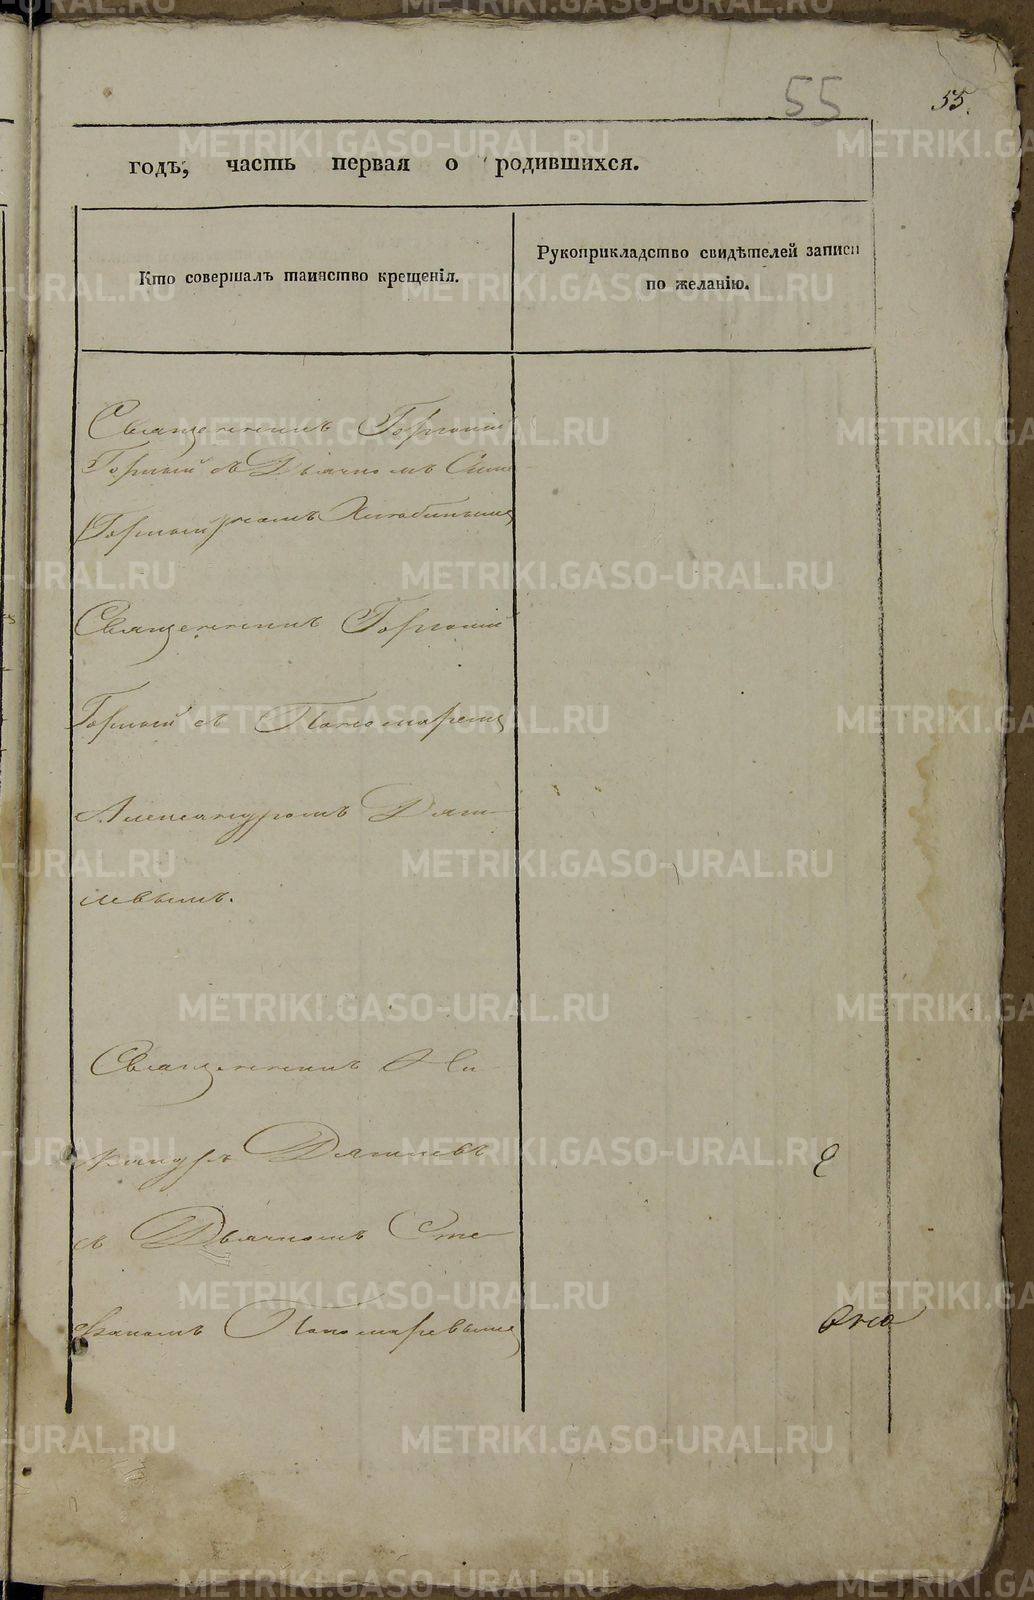 55
55.
годъ, часть первая о родившихся.
Кто совершалъ таинство крещенія.
Рукоприкладство свидѣтелей записи
по желанію.
Священникъ Горгоній
Горный съ Дьячкомъ
Горнымъ
Священникъ Горгоній
Горный съ Пономаремъ
Александромъ Дяги-
левымъ.
Священникъ Ни-
кандръ Дягилевъ
съ Дьячкомъ Сте-
фаномъ Пономаревымъ
METRIKI.GASO-URAL.RU